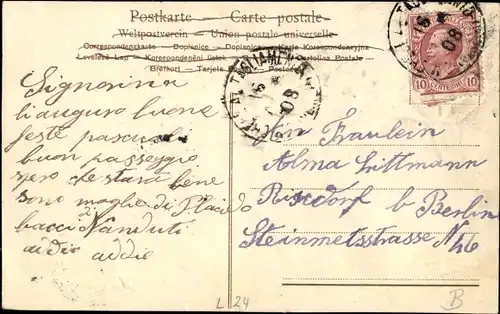 Postkarte — Carte postale
Weltpostverein — Union postale universelle
Correspondenzkarte — Dopisnice — Dopisnica — Karta Korespondencyjna
Levelező Lap — Korespondenční lístek — Cartolina Postale
Brefkort — Tarjeta Postal
08
16
08
10 CENTESIMI 10
Signorina
ti auguro buone
feste pascuale
buon passeggio
spero che stara bene
sono moglie di Placido
baci Nanduti
addio addio
Fräulein
Alma Littmann
Rixdorf b Berlin
Steinmetsstrasse N 46
L 24
B